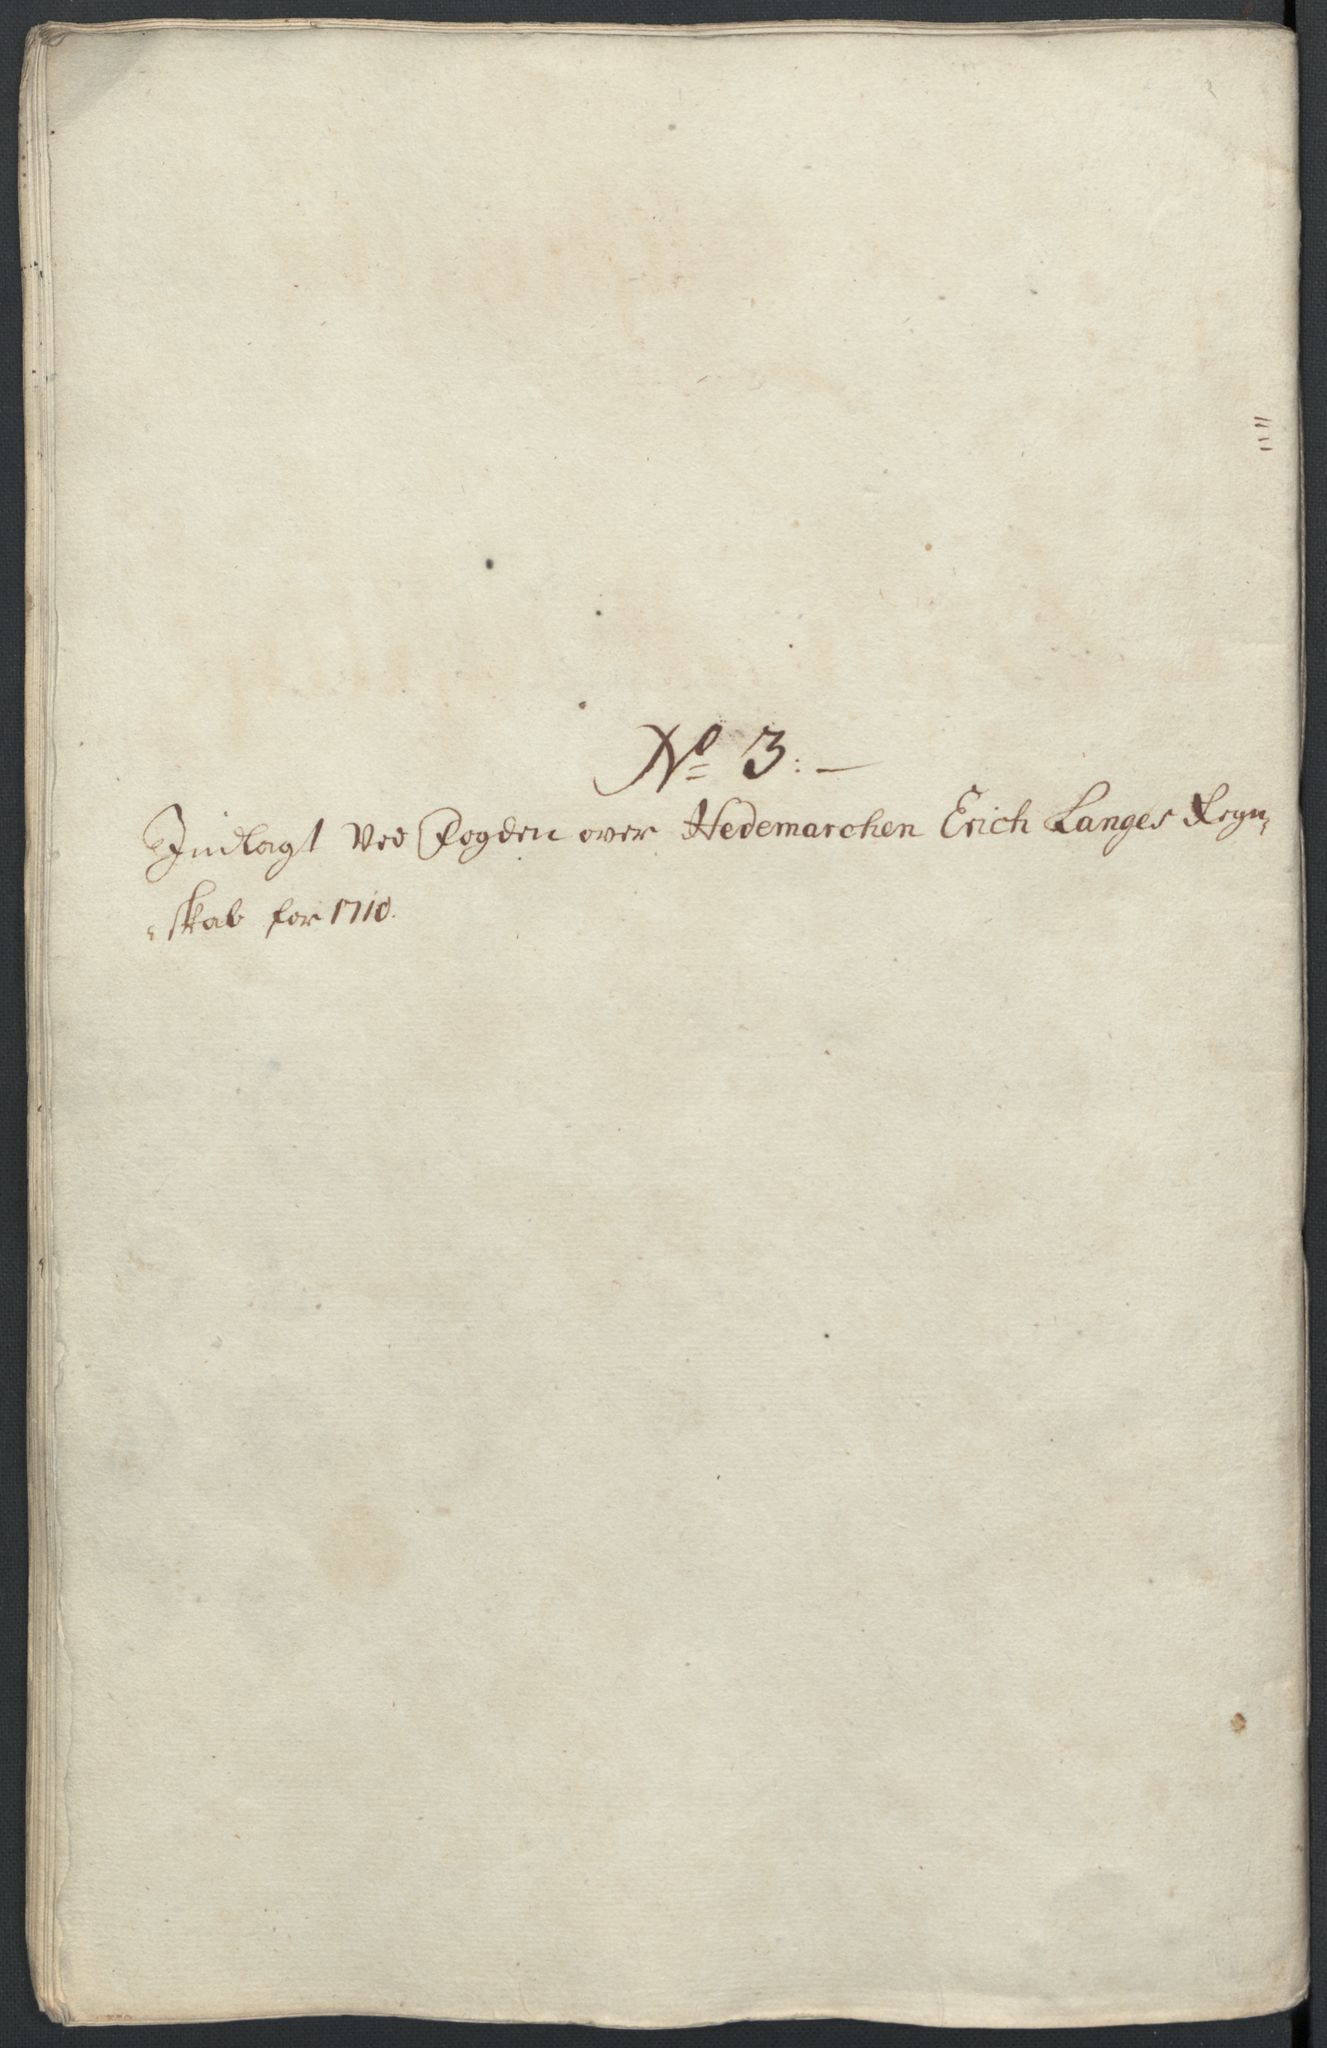 No 3:
Indlagt Ved Fogden over Hedemarchen Erich Langes Regn,
,skab for 1710.